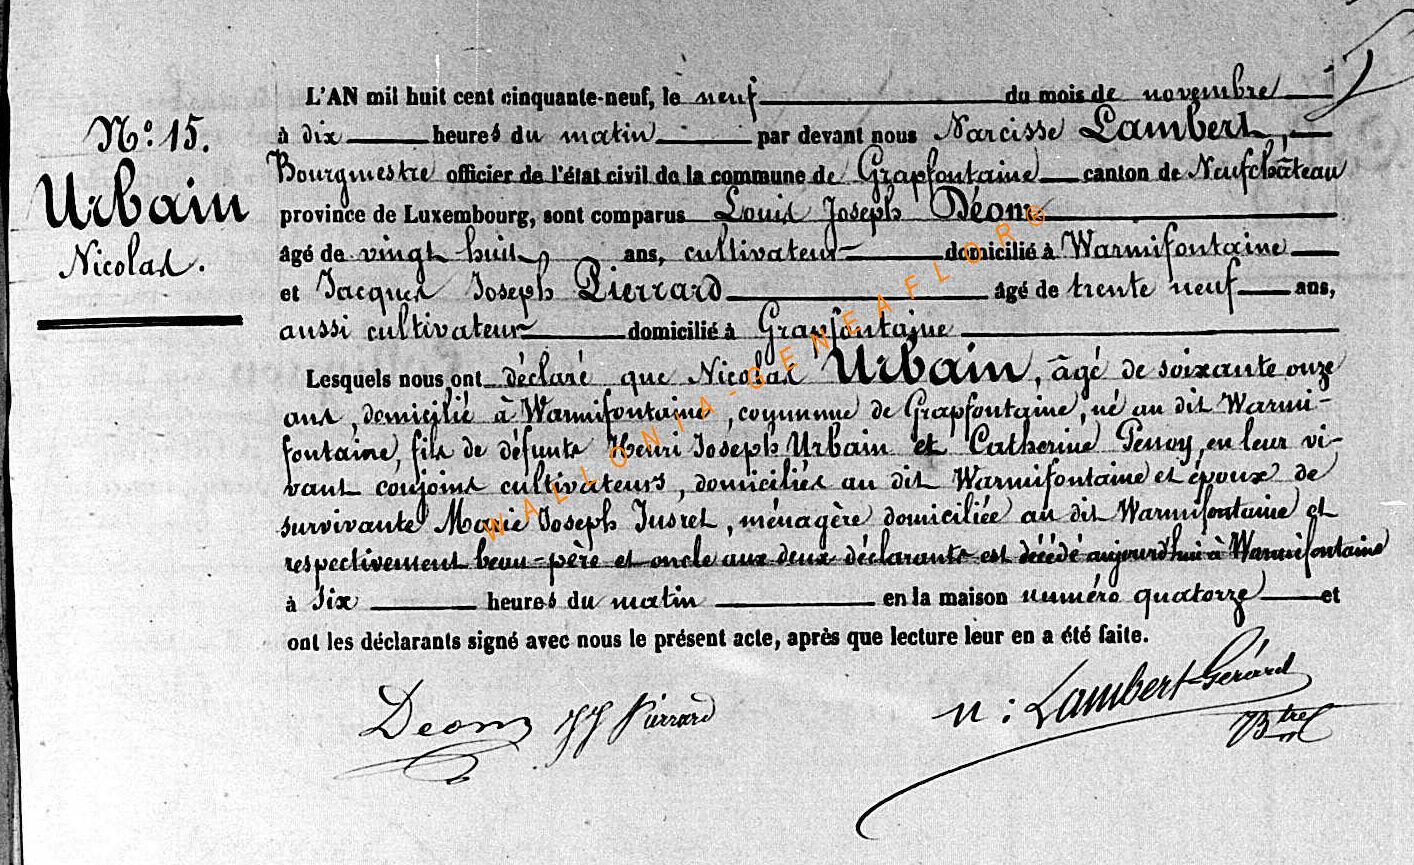 L'AN mil huit cent cinquante-neuf, le neuf du mois de novembre
N° 15.
à dix heures du matin par devant nous Narcisse Lambert,
Bourgmestre officier de l'état civil de la commune de Grapfontaine canton de Neufchâteau
Urbain
province de Luxembourg, sont comparus Louis Joseph Déom
Nicolas.
âgé de vingt huit ans, cultivateur domicilié à Warmifontaine
et Jacques Joseph Pierrard âgé de trente neuf ans,
aussi cultivateur domicilié à Grapfontaine
Lesquels nous ont déclaré que Nicolas Urbain, âgé de soixante onze
ans, domicilié à Warmifontaine, commune de Grapfontaine, né au dit Warmi-
fontaine, fils de défunts Henri Joseph Urbain et Catherine en leur vi-
vant conjoints cultivateurs, domiciliés au dit Warmifontaine et époux de
survivante Marie Joseph Jusret, ménagère domiciliée au dit Warmifontaine et
respectivement beau-père et oncle aux deux déclarants est décédé aujourd'hui à Warmifontaine
à six heures du matin en la maison numéro quatorze et
ont les déclarants signé avec nous le présent acte, après que lecture leur en a été faite.
Deom JJ Pierrard n: Lambert-Gérard
Btre
WALLONIA-GENEAFLORE